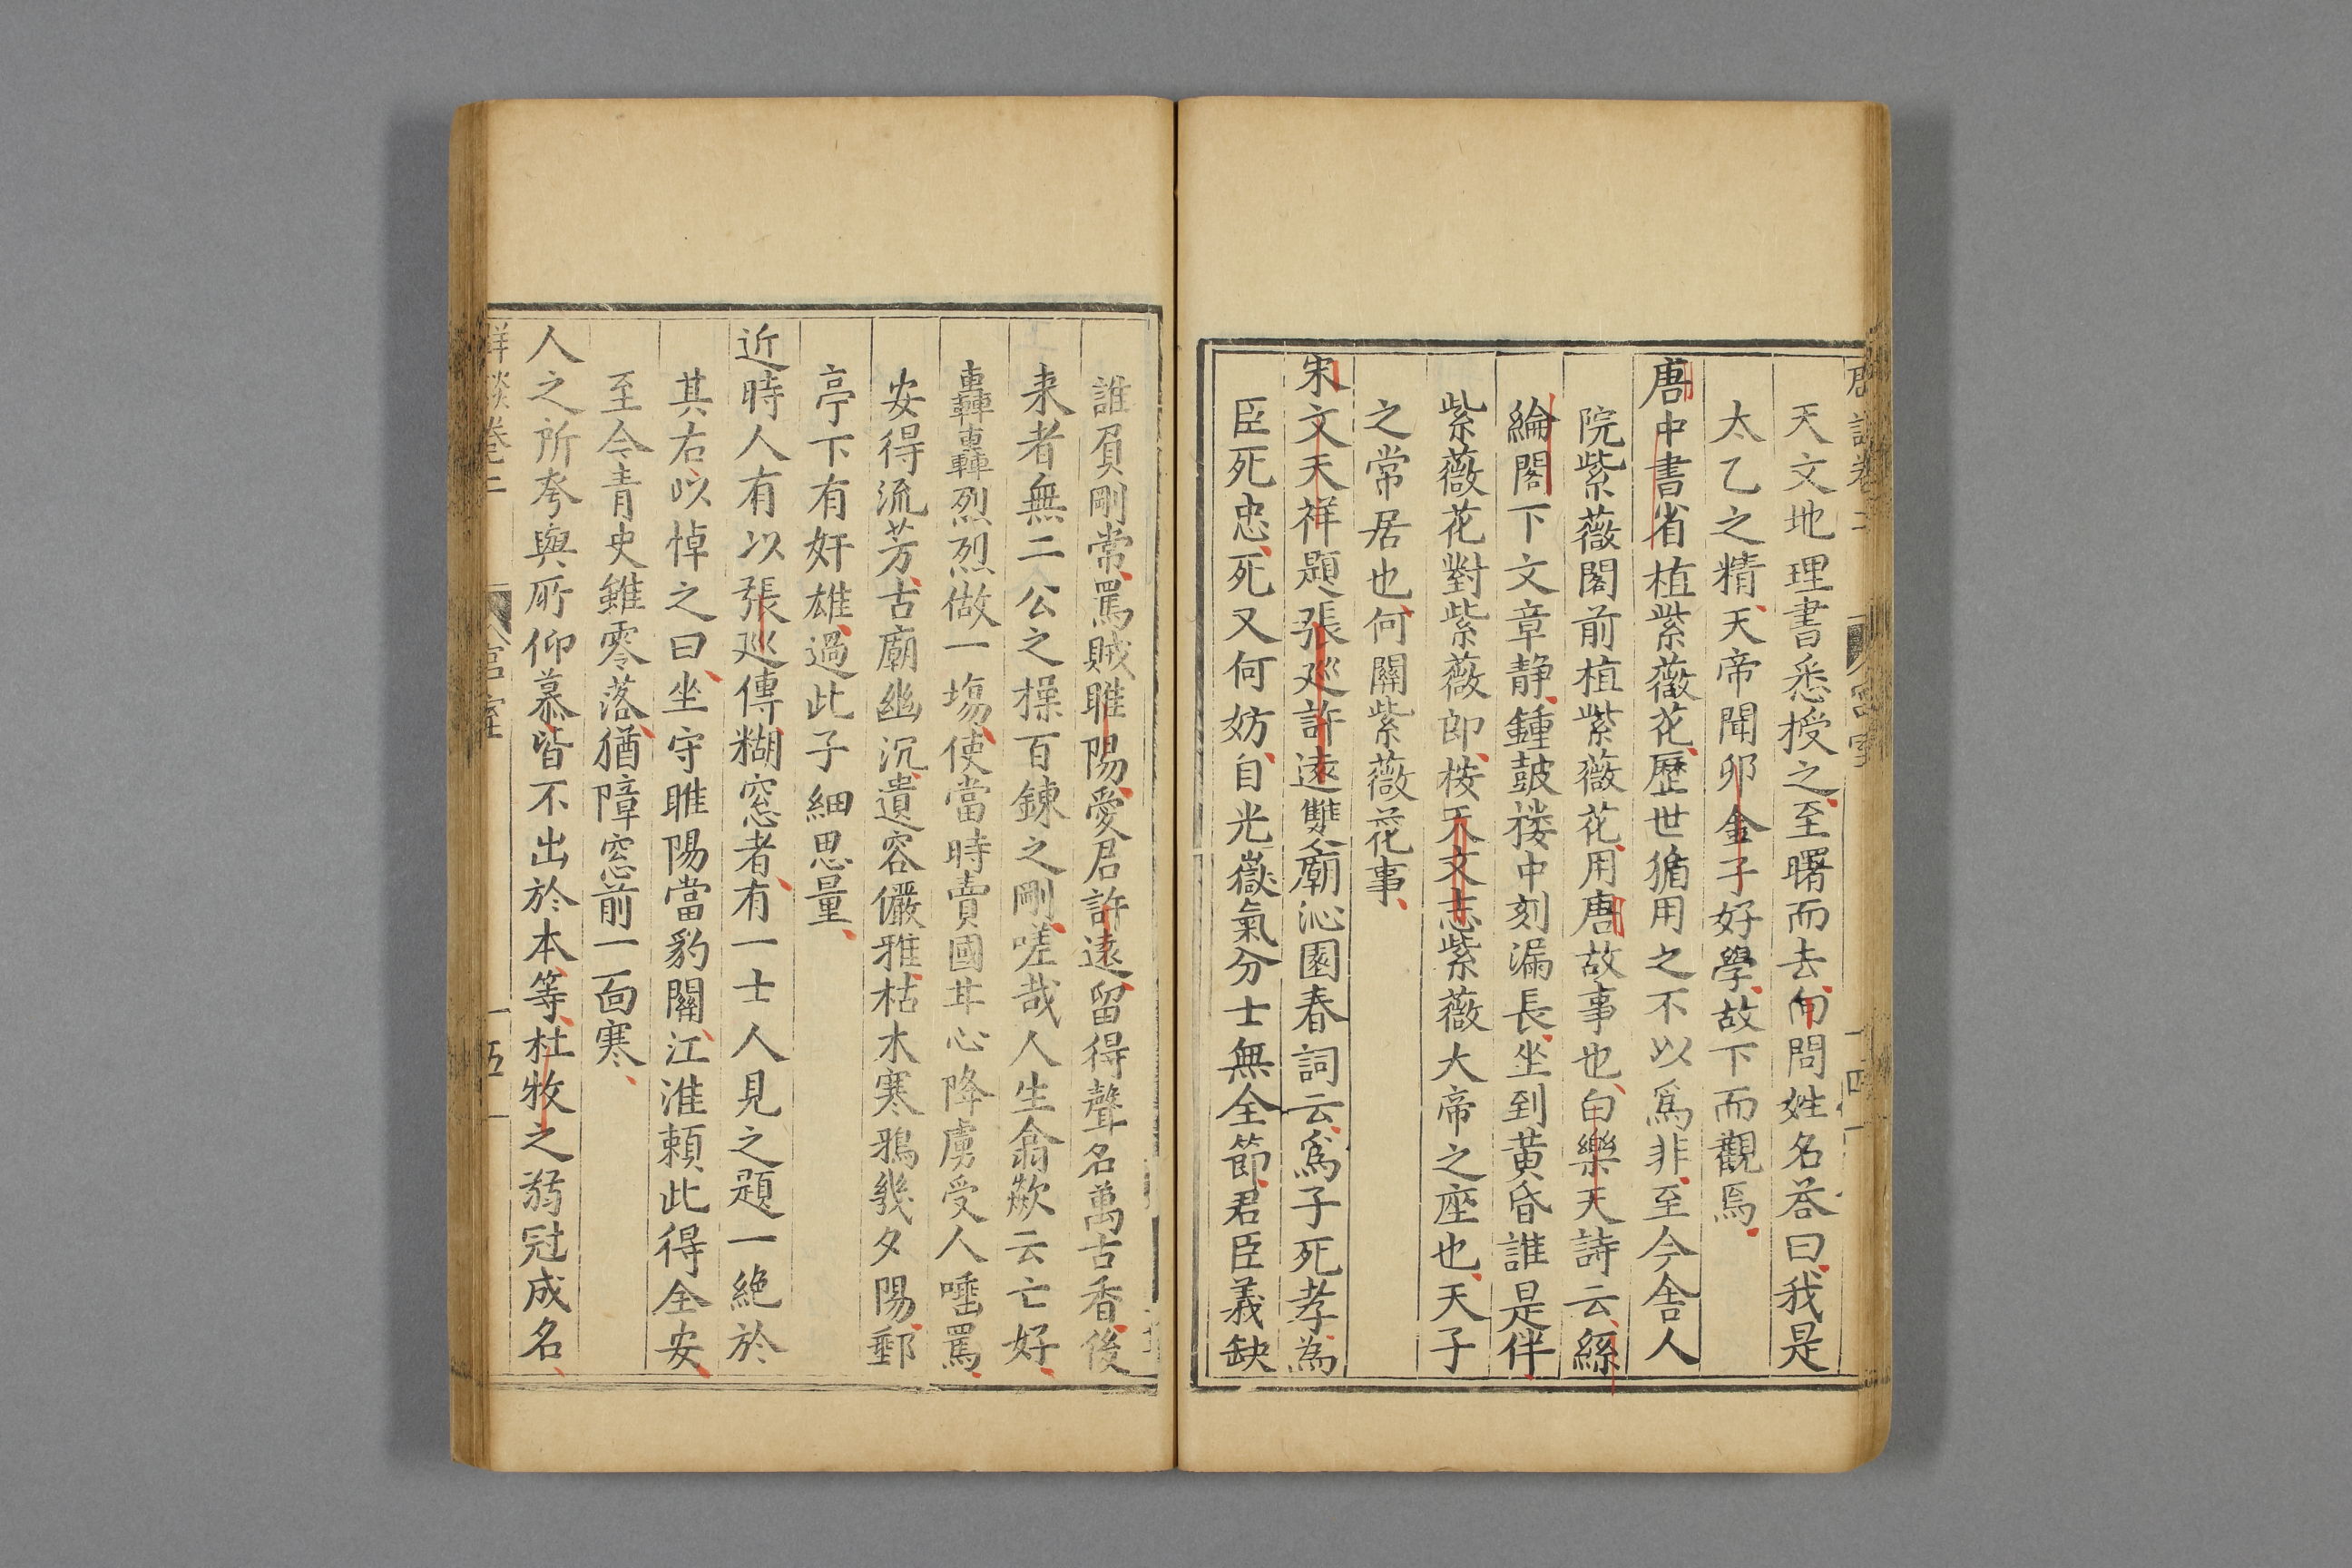 天文地理書悉授之至曙而去向問姓名荅曰我是
太乙之精天帝聞卯金子好學故下而觀焉
唐中書省植紫薇花歷世猶用之不以爲非至今舎人
院紫薇閣前植紫薇花用唐故事也白樂天詩云絲
綸閣下文章静鍾皷楼中刻漏長坐到黄昏誰是伴
紫薇花對紫薇郎桉天文志紫薇大帝之座也天子
之常居也何關紫薇花事
宋文天祥題張廵許遠雙廟沁園春詞云爲子死孝為
臣死忠死又何妨自光嶽氣分士無全節君臣義缺
誰負剛常罵賊睢陽愛君許遠留得聲名萬古香後
来者無二公之操百鍊之剛嗟哉人生翕歘云亡好
轟轟烈烈做一塲使當時賣國甘心降虜受人唾罵
安得流芳古廟幽沉遺容儼雅枯木寒鴉幾夕陽郵
亭下有奸雄過此子細思量
近時人有以張廵傳糊窓者有一士人見之題一絶於
其右以悼之曰坐守睢陽當豹關江淮頼此得全安
至今青史雖零落猶障窓前一面寒
人之所夸與所仰慕皆不出於本等杜牧之弱冠成名
卷二
五